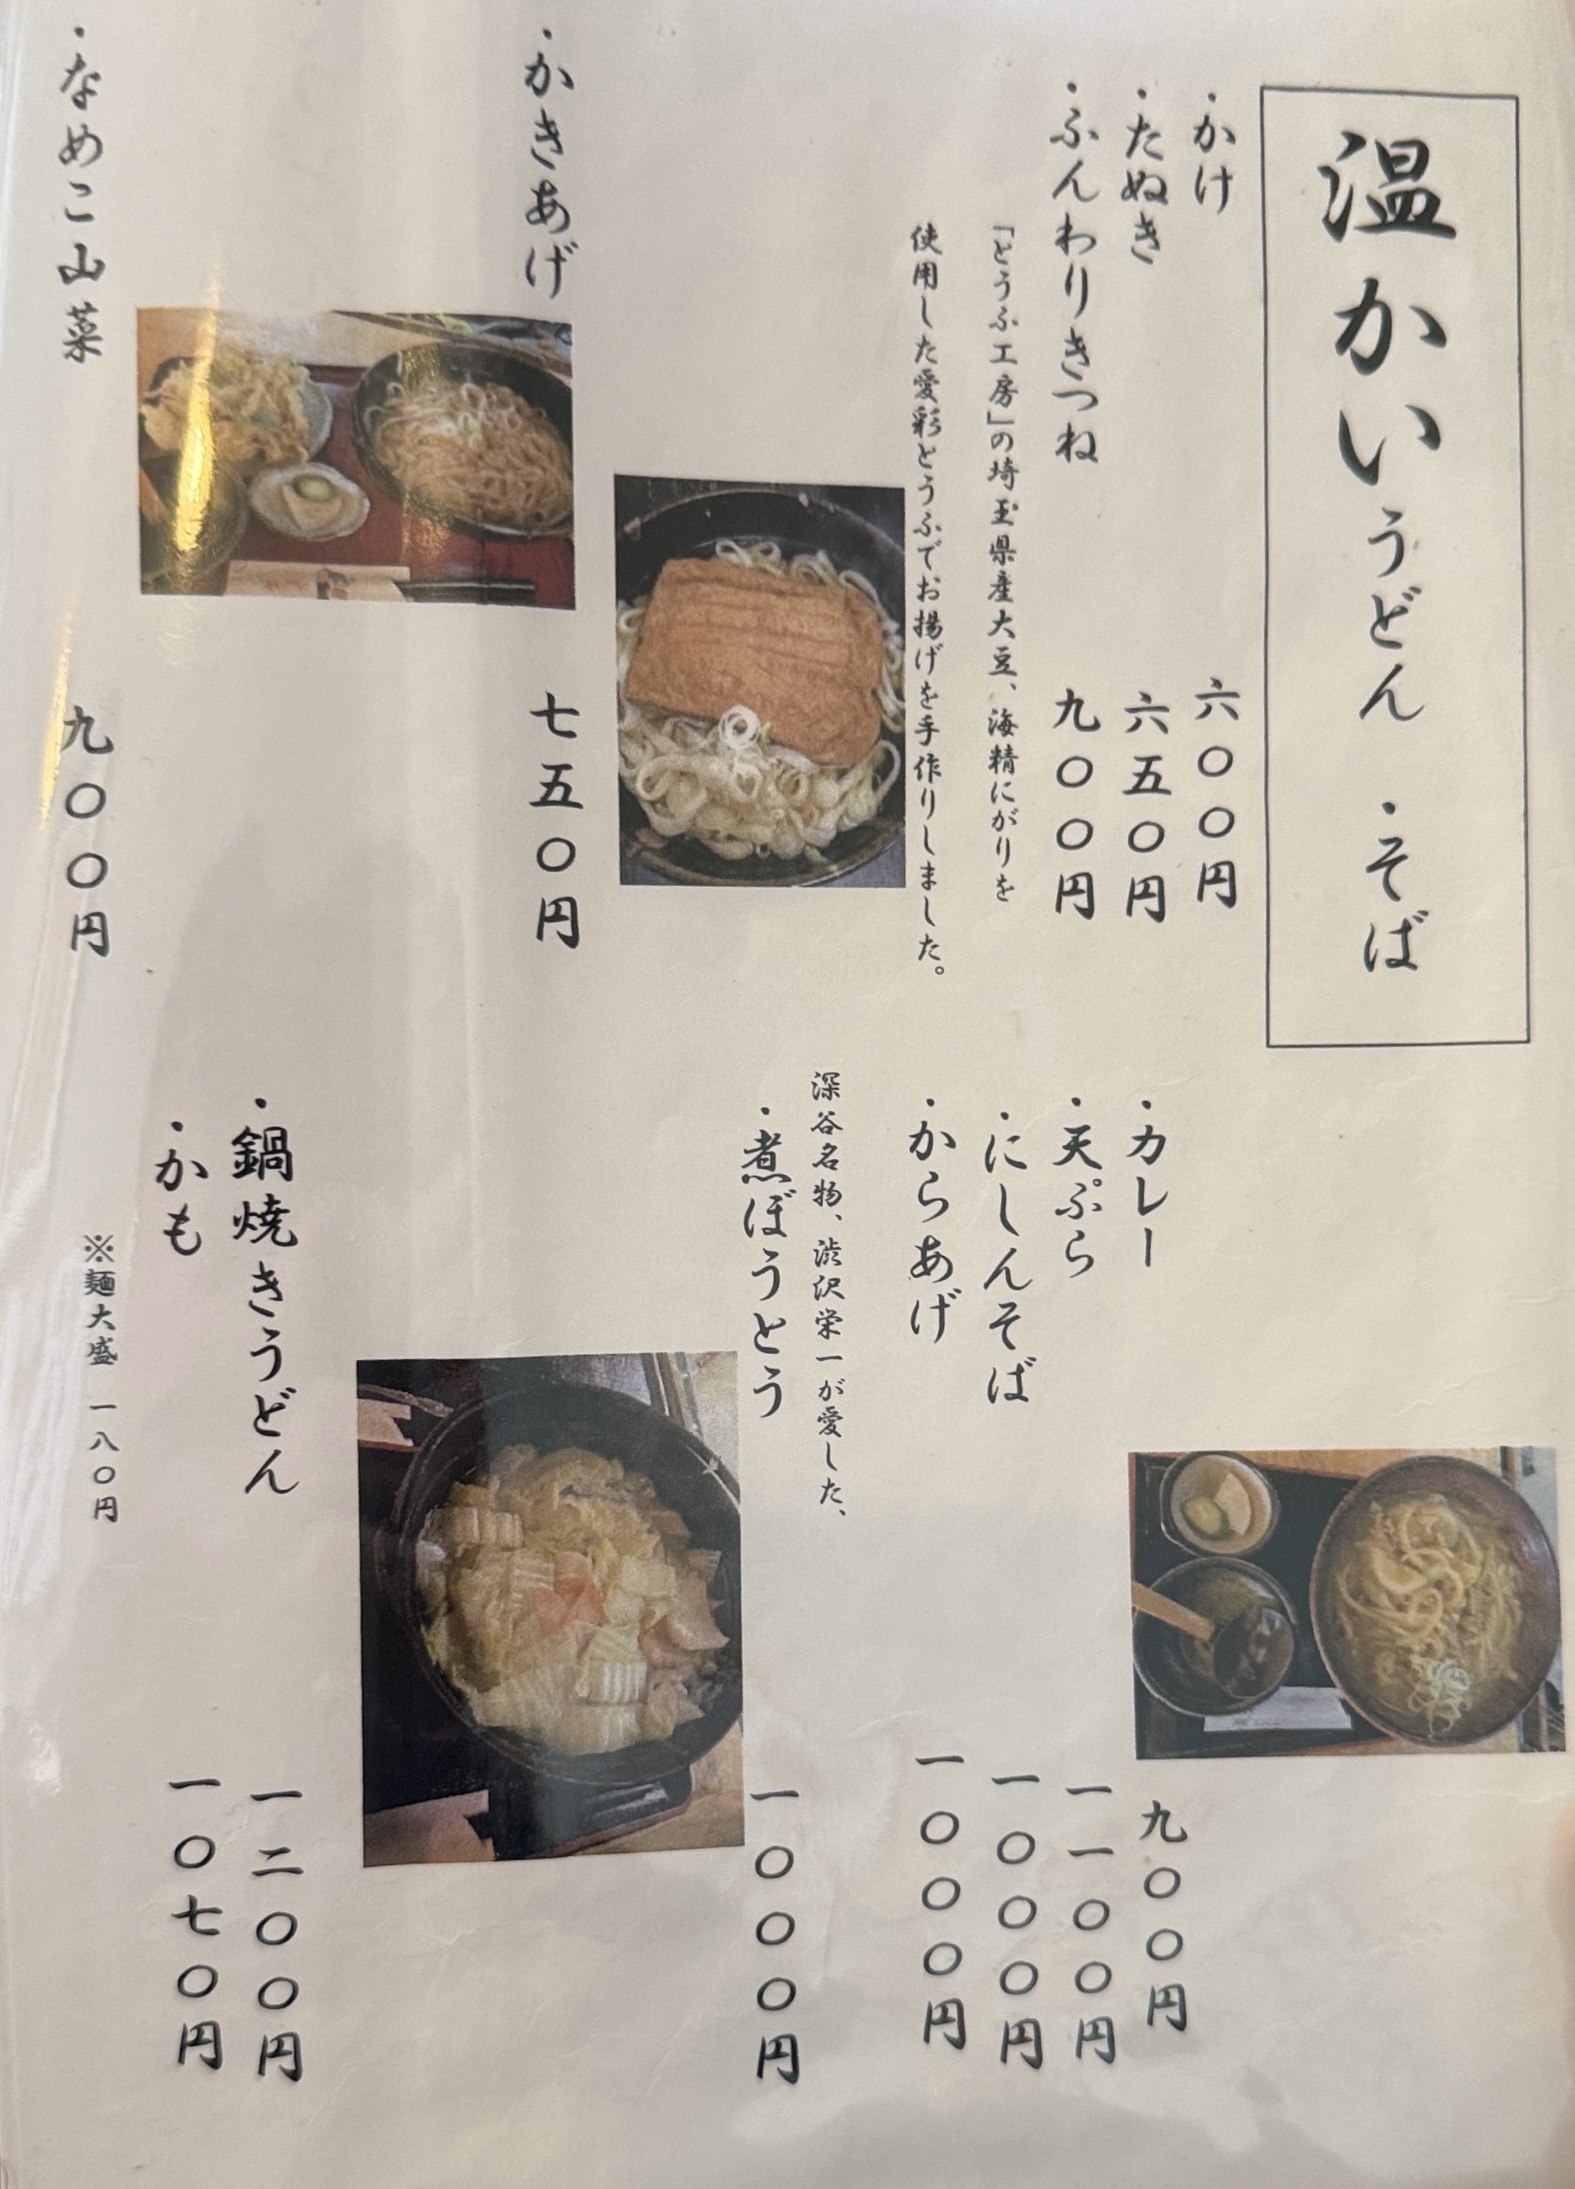 温かいうどん・そば
・かけ 六〇〇円
・たぬき 六五〇円
・ふんわりきつね 九〇〇円
「とうふ工房」の埼玉県産大豆、海精にがりを
使用した愛彩とうふでお揚げを手作りしました。
・かきあげ 七五〇円
・なめこ山菜 九〇〇円
・カレー 九〇〇円
・天ぷら 一一〇〇円
・にしんそば 一〇〇〇円
・からあげ 一〇〇〇円
深谷名物、渋沢栄一が愛した、
・煮ぼうとう 一〇〇〇円
・鍋焼きうどん 一二〇〇円
・かも 一〇七〇円
※麺大盛 一八〇円